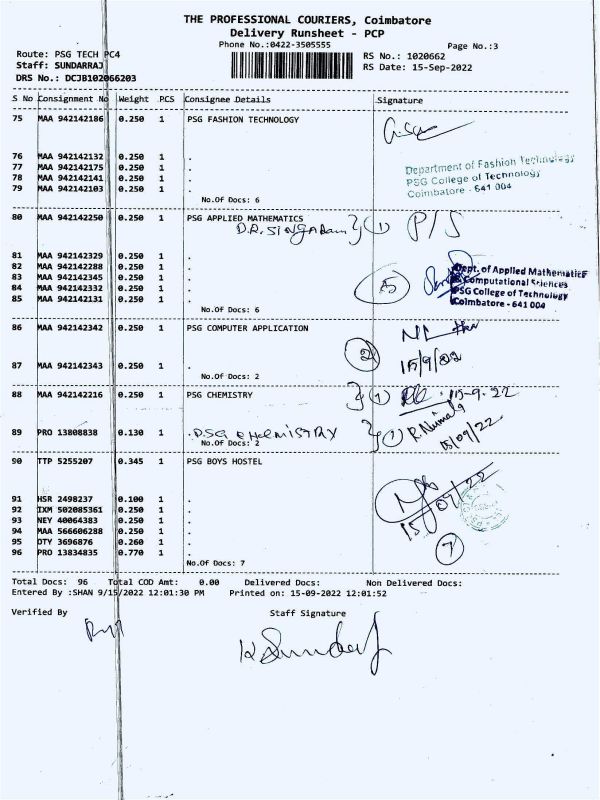 THE PROFESSIONAL COURIERS, Coimbatore
Delivery Runsheet - PCP
Phone No.:0422-3505555
Page No.:3
Route: PSG TECH PC4
RS No.: 1020662
Staff: SUNDARRAJ
RS Date: 15-Sep-2022
DRS No.: DCJB102066203
S No Consignment No Weight PCS Consignee Details Signature
75 MAA 942142186 0.250 1 PSG FASHION TECHNOLOGY
76 MAA 942142132 0.250 1 .
77 MAA 942142175 0.250 1 .
78 MAA 942142141 0.250 1 .
79 MAA 942142103 0.250 1 .
Department of Fashion Technology
PSG College of Technology
Coimbatore - 641 004
No.Of Docs: 6
80 MAA 942142250 0.250 1 PSG APPLIED MATHEMATICS
(1) P/S
81 MAA 942142329 0.250 1 .
82 MAA 942142288 0.250 1 .
83 MAA 942142345 0.250 1 .
84 MAA 942142332 0.250 1 .
85 MAA 942142131 0.250 1 .
5
Dept. of Applied Mathematics
Computational Sciences
PSG College of Technology
Coimbatore - 641 004
No.Of Docs: 6
86 MAA 942142342 0.250 1 PSG COMPUTER APPLICATION
2
15/9/22
87 MAA 942142343 0.250 1 .
No.Of Docs: 2
88 MAA 942142216 0.250 1 PSG CHEMISTRY
(1) 15-9-22
89 PRO 13808838 0.130 1 . PSG CHEMISTRY
(1)
15/09/22
No.Of Docs: 2
90 TTP 5255207 0.345 1 PSG BOYS HOSTEL
15/09/22
91 HSR 2498237 0.100 1 .
92 IXM 502085361 0.250 1 .
93 NEY 40064383 0.250 1 .
94 MAA 566606288 0.250 1 .
95 OTY 3696876 0.260 1 .
96 PRO 13834835 0.770 1 .
7
No.Of Docs: 7
Total Docs: 96 Total COD Amt: 0.00 Delivered Docs: Non Delivered Docs:
Entered By :SHAN 9/15/2022 12:01:30 PM Printed on: 15-09-2022 12:01:52
Verified By
Staff Signature